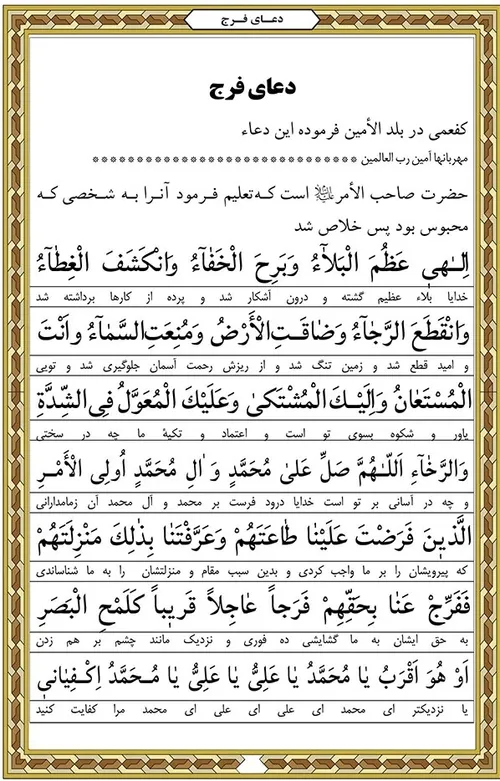 دعـای فـرج
دعای فرج
کفعمی در بلد الأمین فرموده این دعاء
مهربانها آمین رب العالمین ******************************
حضرت صاحب الأمر است که تعلیم فرمود آنرا به شخصی که
محبوس بود پس خلاص شد
اِلـٰهی عَظُمَ الْبَلاٰءُ وَبَرِحَ الْخَفٰاءُ وَانْکَشَفَ الْغِطٰاءُ
خدایا بلاء عظیم گشته و درون آشکار شد و پرده از کارها برداشته شد
وَانْقَطَعَ الرَّجٰاءُ وَضٰاقَـتِ الْأَرْضُ وَمُنِعَتِ السَّمٰاءُ وَاَنْتَ
و امید قطع شد و زمین تنگ شد و از ریزش رحمت آسمان جلوگیری شد و تویی
الْمُسْتَعٰانُ وَاِلَیْـکَ الْمُشْتَکیٰ وَعَلَیْکَ الْمُعَوَّلُ فِی الشِّدَّةِ
یاور و شکوه بسوی تو است و اعتماد و تکیهٔ ما چه در سختی
وَالرَّخٰاءِ اَللّـٰهُمَّ صَلِّ عَلیٰ مُحَمَّدٍ وَ اٰلِ مُحَمَّدٍ اُولِی الْأَمْـرِ
و چه در آسانی بر تو است خدایا درود فرست بر محمد و آل محمد آن زمامدارانی
الَّذینَ فَرَضْتَ عَلَیْنٰا طٰاعَتَهُمْ وَعَرَّفْتَنٰا بِذٰلِکَ مَنْزِلَتَهُمْ
که پیرویشان را بر ما واجب کردی و بدین سبب مقام و منزلتشان را به ما شناساندی
فَفَرِّجْ عَنّٰا بِحَقِّهِمْ فَرَجاً عٰاجِلاً قَریباً کَلَمْحِ الْبَصَرِ
به حق ایشان به ما گشایشی ده فوری و نزدیک مانند چشم بر هم زدن
اَوْ هُوَ اَقْرَبُ یٰا مُحَمَّدُ یٰا عَلِیُّ یٰا عَلِیُّ یٰا مُـحَمَّدُ اِکْـفِیٰانی
یا نزدیکتر ای محمد ای علی ای علی ای محمد مرا کفایت کنید